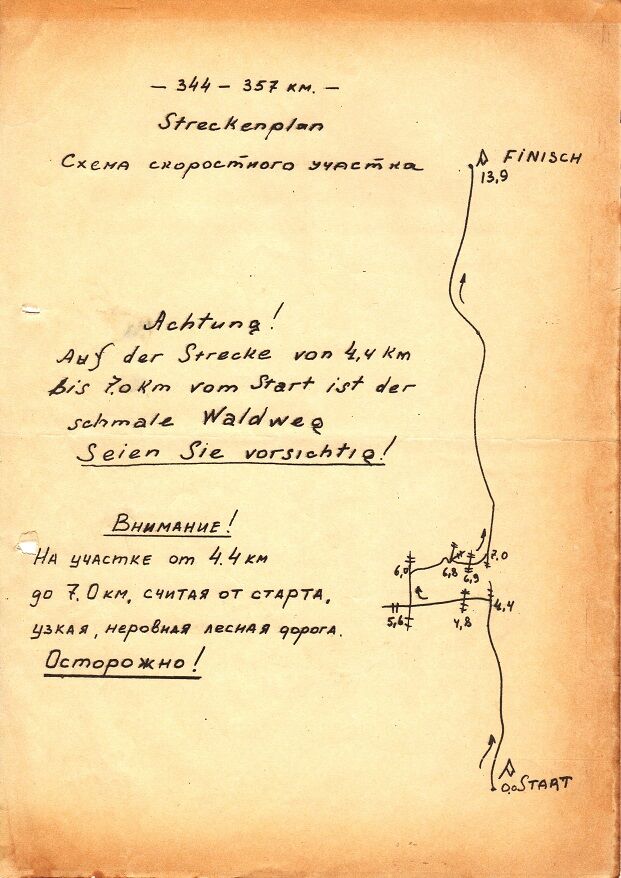 — 344 — 357 км. —
Streckenplan
Схема скоростного участка
FINISCH
13,9
Achtung!
Auf der Strecke von 4,4 km
bis 7.0 km vom Start ist der
schmale Waldweg
Seien Sie vorsichtig!
Внимание!
На участке от 4.4 км
до 7.0 км, считая от старта,
узкая, неровная лесная дорога.
Осторожно!
7.0
6,0
6,8
6,9
4,4
5,6
4,8
0,0 START